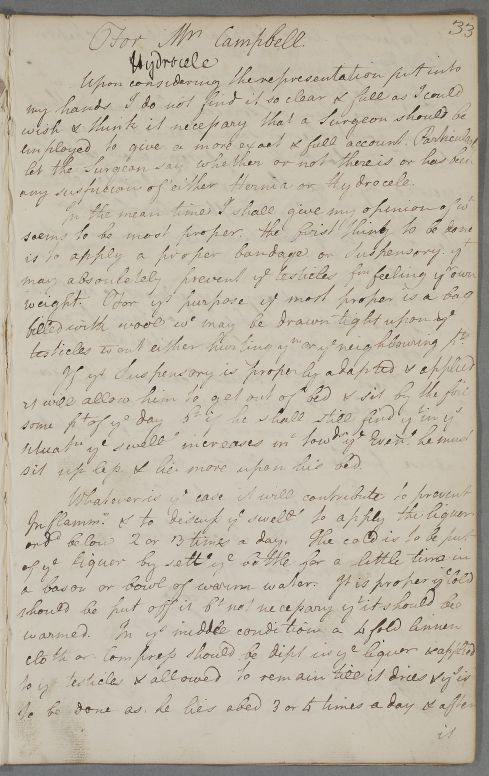 33
For Mr Campbell.
Hydrocele
Upon considering the representation put into
my hands I do not find it so clear & full as I could
wish & think it necessary that a Surgeon should be
employed to give a more exact & full account. Particularly
let the Surgeon say whether or not there is or has been
any suspicion of either Hernia or Hydrocele.
In the mean time I shall give my opinion of wt
seems to be most proper. The first thing to be done
is to apply a proper bandage or Suspensory yt
may absolutely prevent ye testicles fm feeling yr own
weight. For ys purpose ye most proper is a bag
filled with wool wc may be drawn tight upon ye
testicles wtout either hurting ym or ye neighbouring pts
If ys Suspensory is properly adapted & applied
it will allow him to get out of bed & sit by the fire
some pt of ye day bt if he shall still find yt in ys
situatn ye swellg increases in towds ye Eveng he must
sit up less & lie more upon his bed.
Whatever is ye case it will contribute to prevent
Inflammn & to discuss ye swellg to apply the liquor
ordd below 2 or 3 times a day. The cold is to be put
off ye liquor by settg ye bottle for a little time in
a bason or bowl of warm water. It is proper ye cold
should be put off it bt not necessary yt it should be
warmed. In ys middle condition a 4 fold linnen
cloth or compress should be dipt in ye liquor & applied
to ye testicles & allowed to remain till it dries & ys is
to be done as he lies abed 3 or 4 times a day & after
it